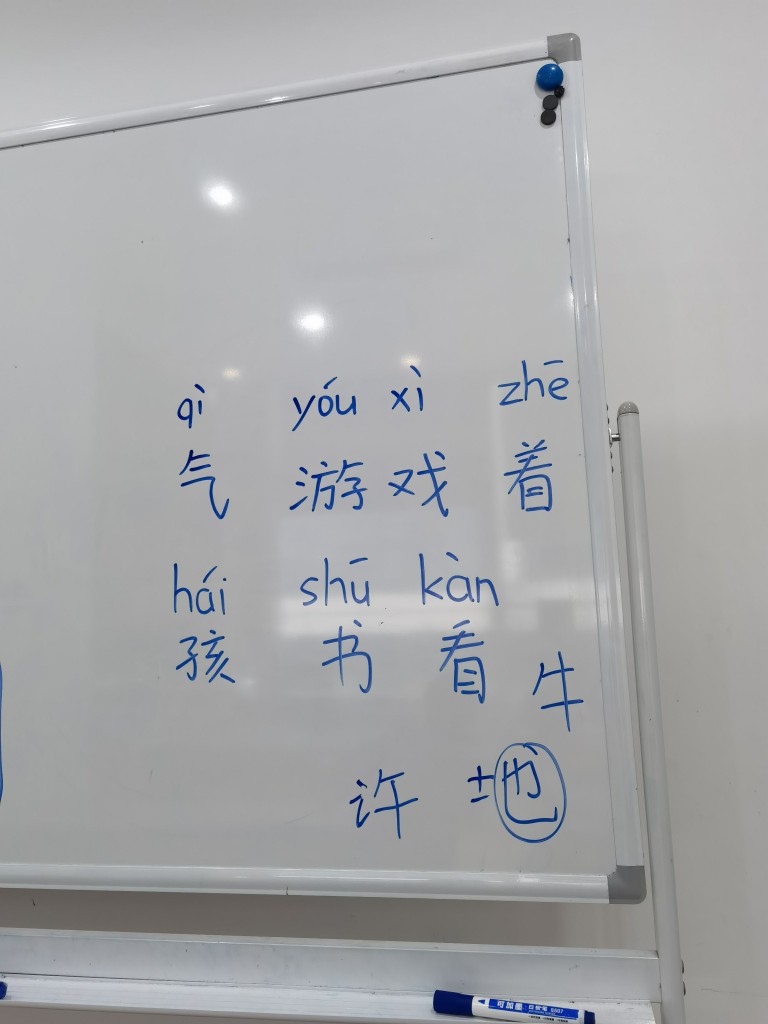 qì yóu xì zhē
气 游 戏 着
hái shū kàn
孩 书 看
牛
许 地
可加墨 白板笔 S507